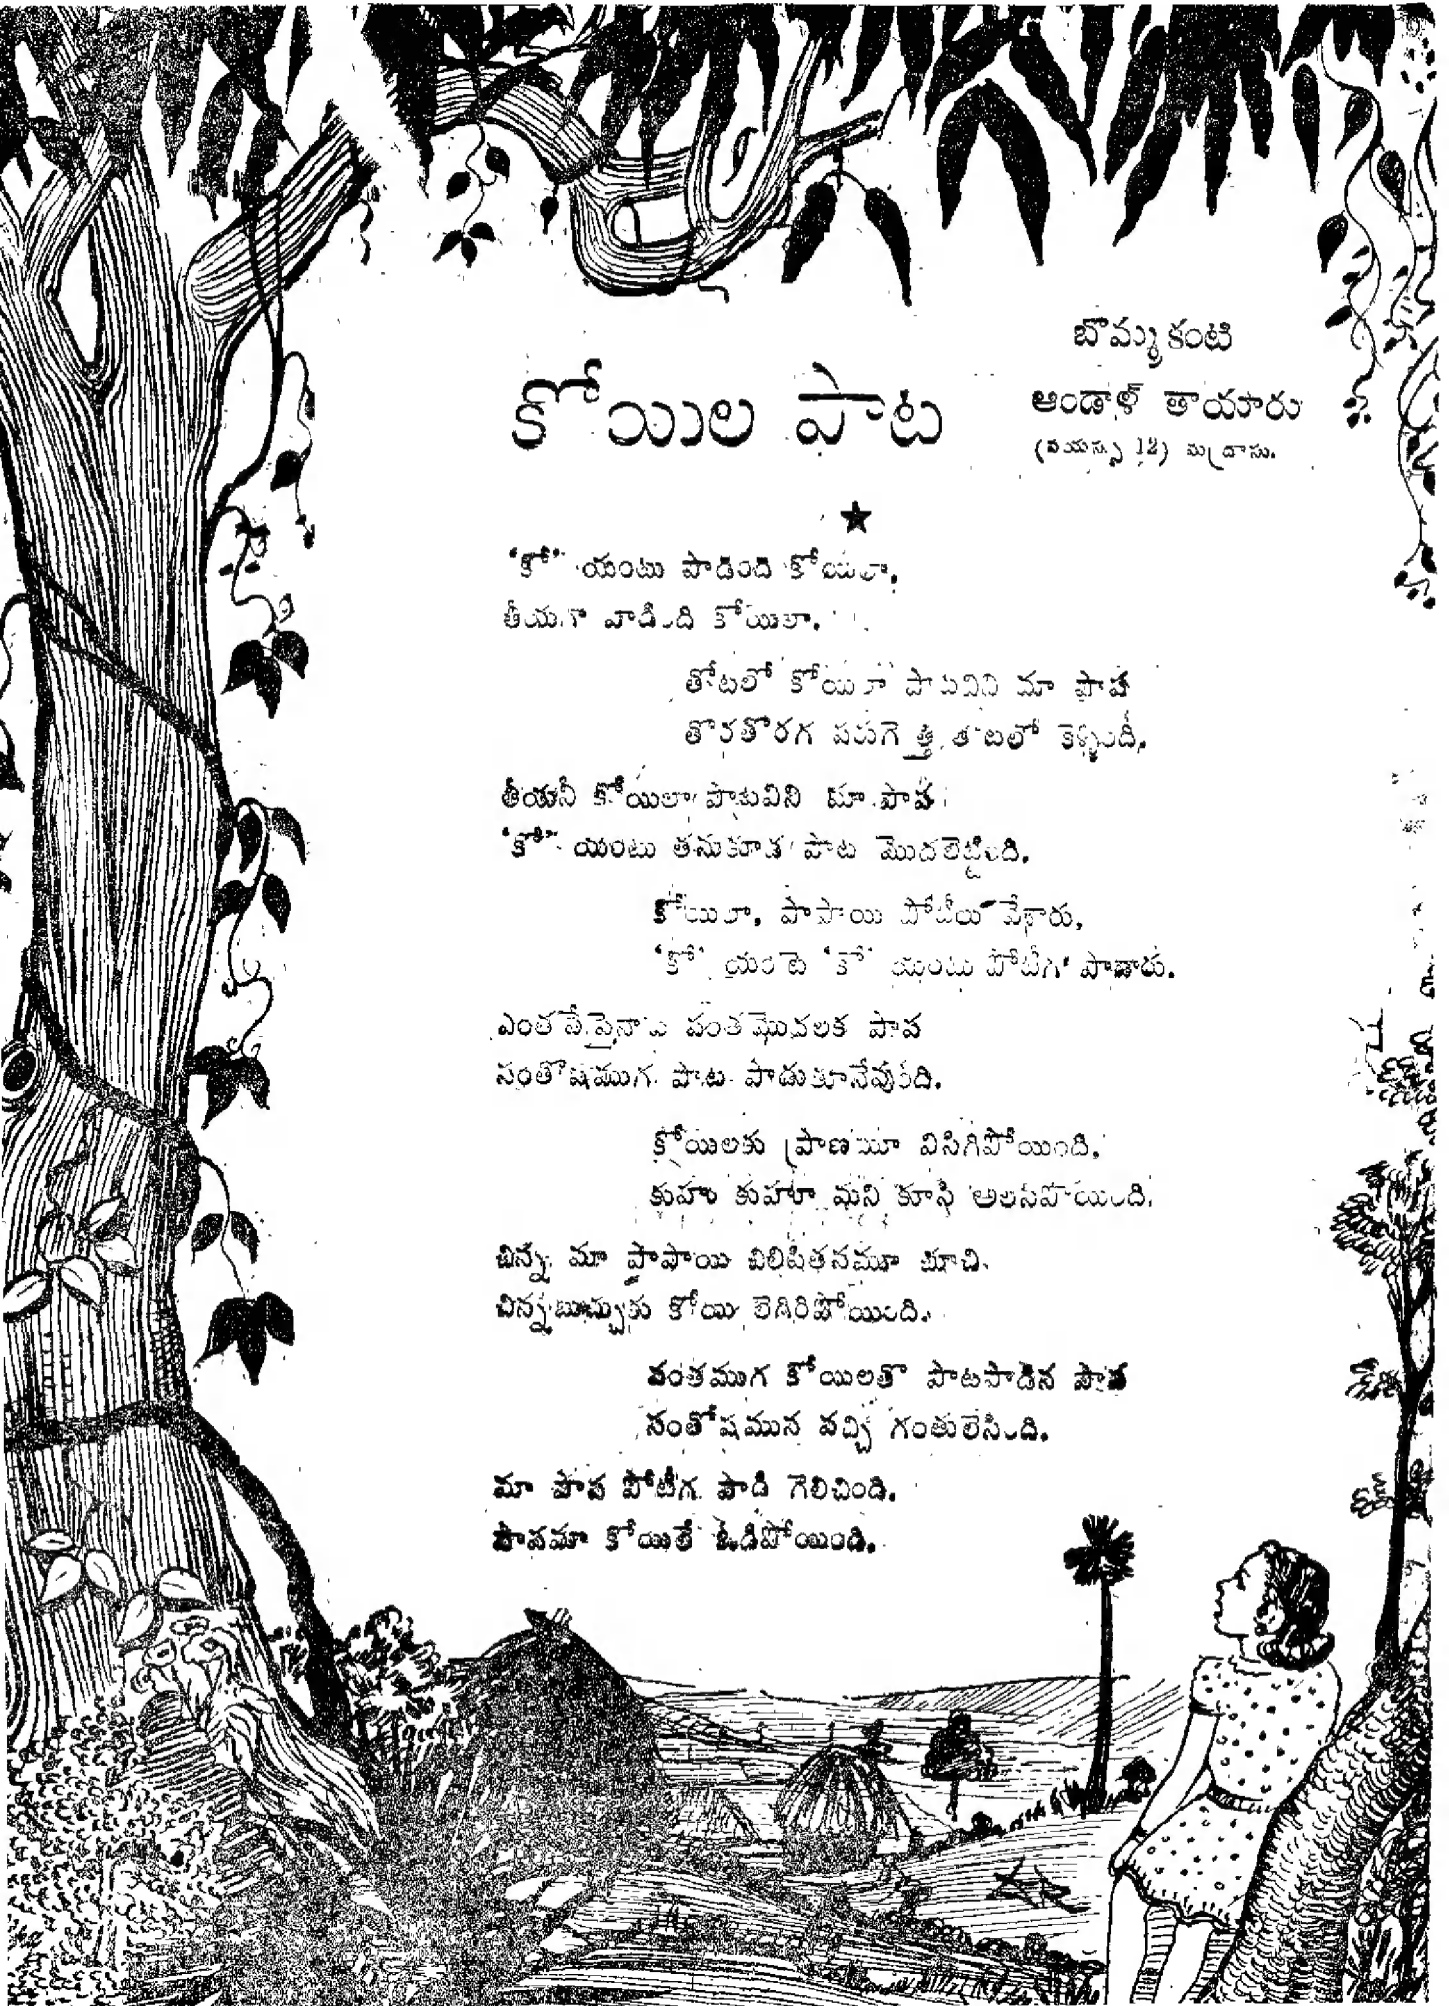 బొమ్మకంటి
ఆండాళ్ తాయారు
(వయస్సు 12) మద్రాసు.
కోయిల పాట
★
'కో' యంటు పాడింది కోయిలా,
తీయగా పాడింది కోయిలా.
తోటలో కోయిలా పాటవిని మా పాప
తొరతొరగ పరుగెత్తి తోటలో కెళ్ళింది.
తీయనీ కోయిలా పాటవిని మా పాప
'కో' యంటు తనుకూడ పాట మొదలెట్టింది.
కోయిలా, పాపాయి పోటీలు వేశారు,
'కో' యంటె 'కో' యంటు పోటీగ పాడారు.
ఎంత పంతమొదలక పాప
సంతోషముగ పాట పాడుకూనేవుంది.
కోయిలకు ప్రాణమూ విసిగిపోయింది,
కుహు కుహూ మని కూసి అలసిపోయింది.
చిన్న మా పాపాయి చిలిపితనమూ చూచి
చిన్నబుచ్చుకు కోయి లెగిరిపోయింది.
పంతముగ కోయిలతొ పాటపాడిన పాప
సంతోషమున వచ్చి గంతులేసింది.
మా పాప పోటీగ పాడి గెలిచింది.
పాపమా కోయిలే ఓడిపోయింది.